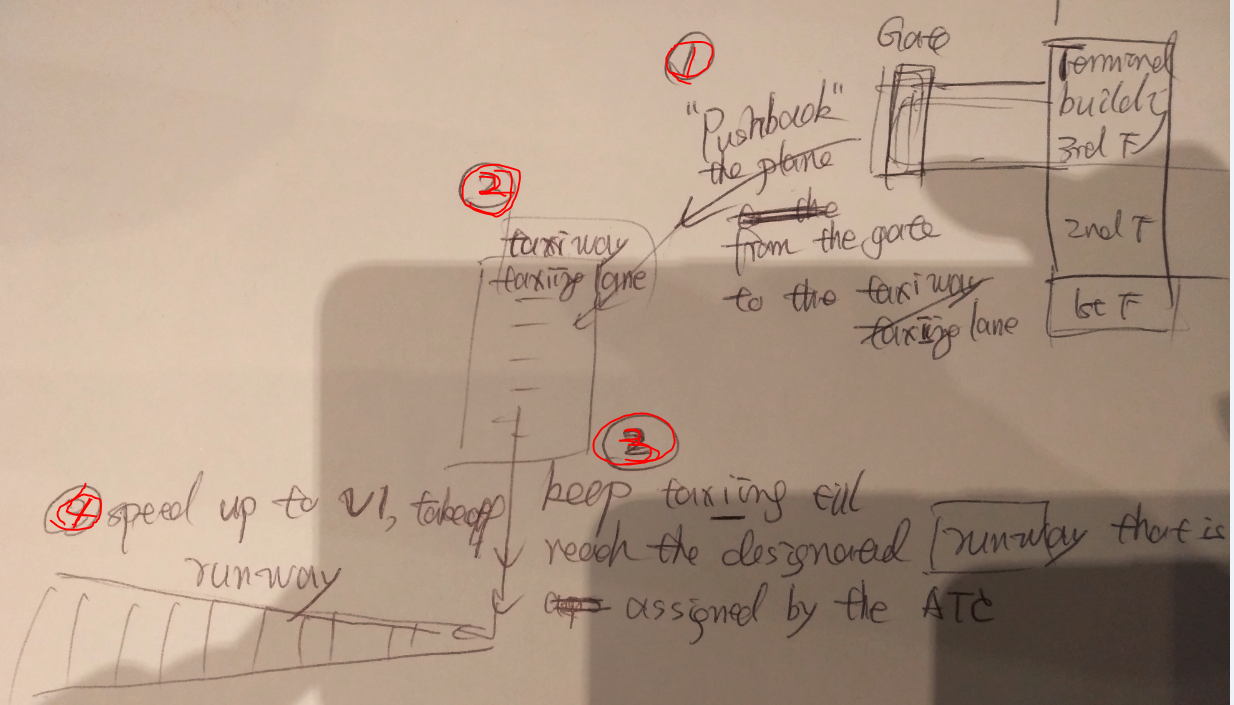 Gate
Terminal
buildi
3rd F
2nd F
1st F
①
"Pushback"
the plane
from the gate
to the taxiway
taxiing lane
②
taxiway
taxiing lane
③
keep taxiing till
reach the designated runway that is
assigned by the ATC
④ speed up to V1, takeoff
runway